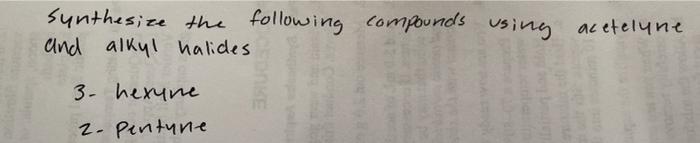 synthesize the following compounds using acetelyne
and alkyl halides
3- hexyne
2- pentyne